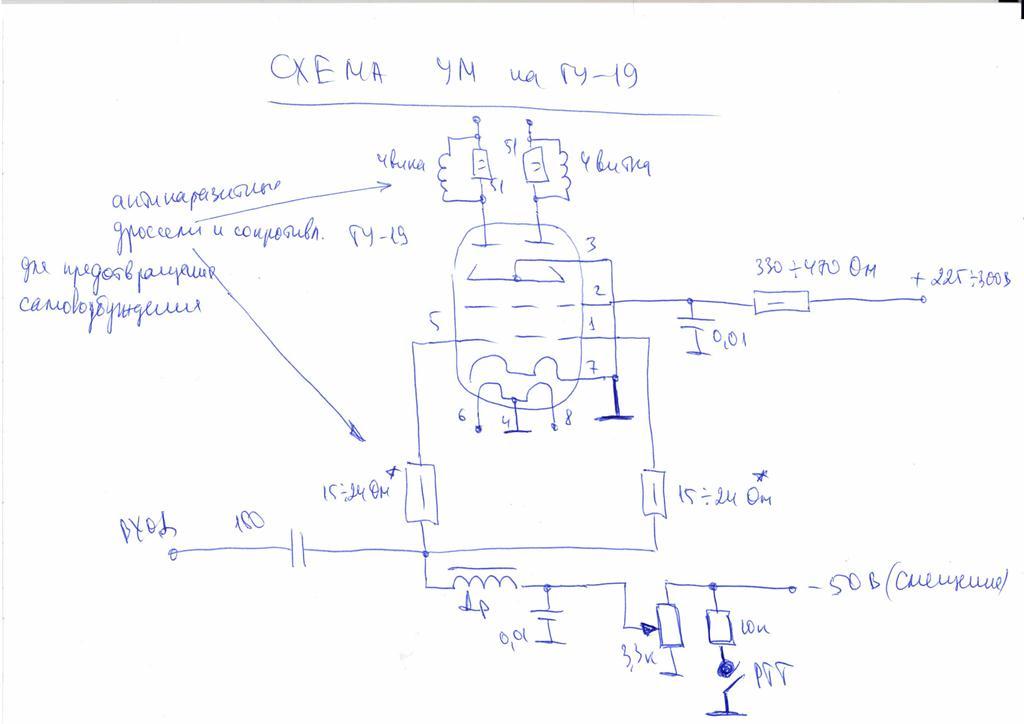 СХЕМА УМ на ГУ-19
4 витка
51
51
4 витка
антипаразитные
дроссели и сопротивл.
ГУ-19
для предотвращения
самовозбуждения
3
2
1
5
7
6
4
8
330÷470 Ом
+ 225÷300В
0,01
15÷24 Ом*
15÷24 Ом*
ВХОД
180
Др
0,01
3,3к
10к
РТТ
- 50 В (Смещение)